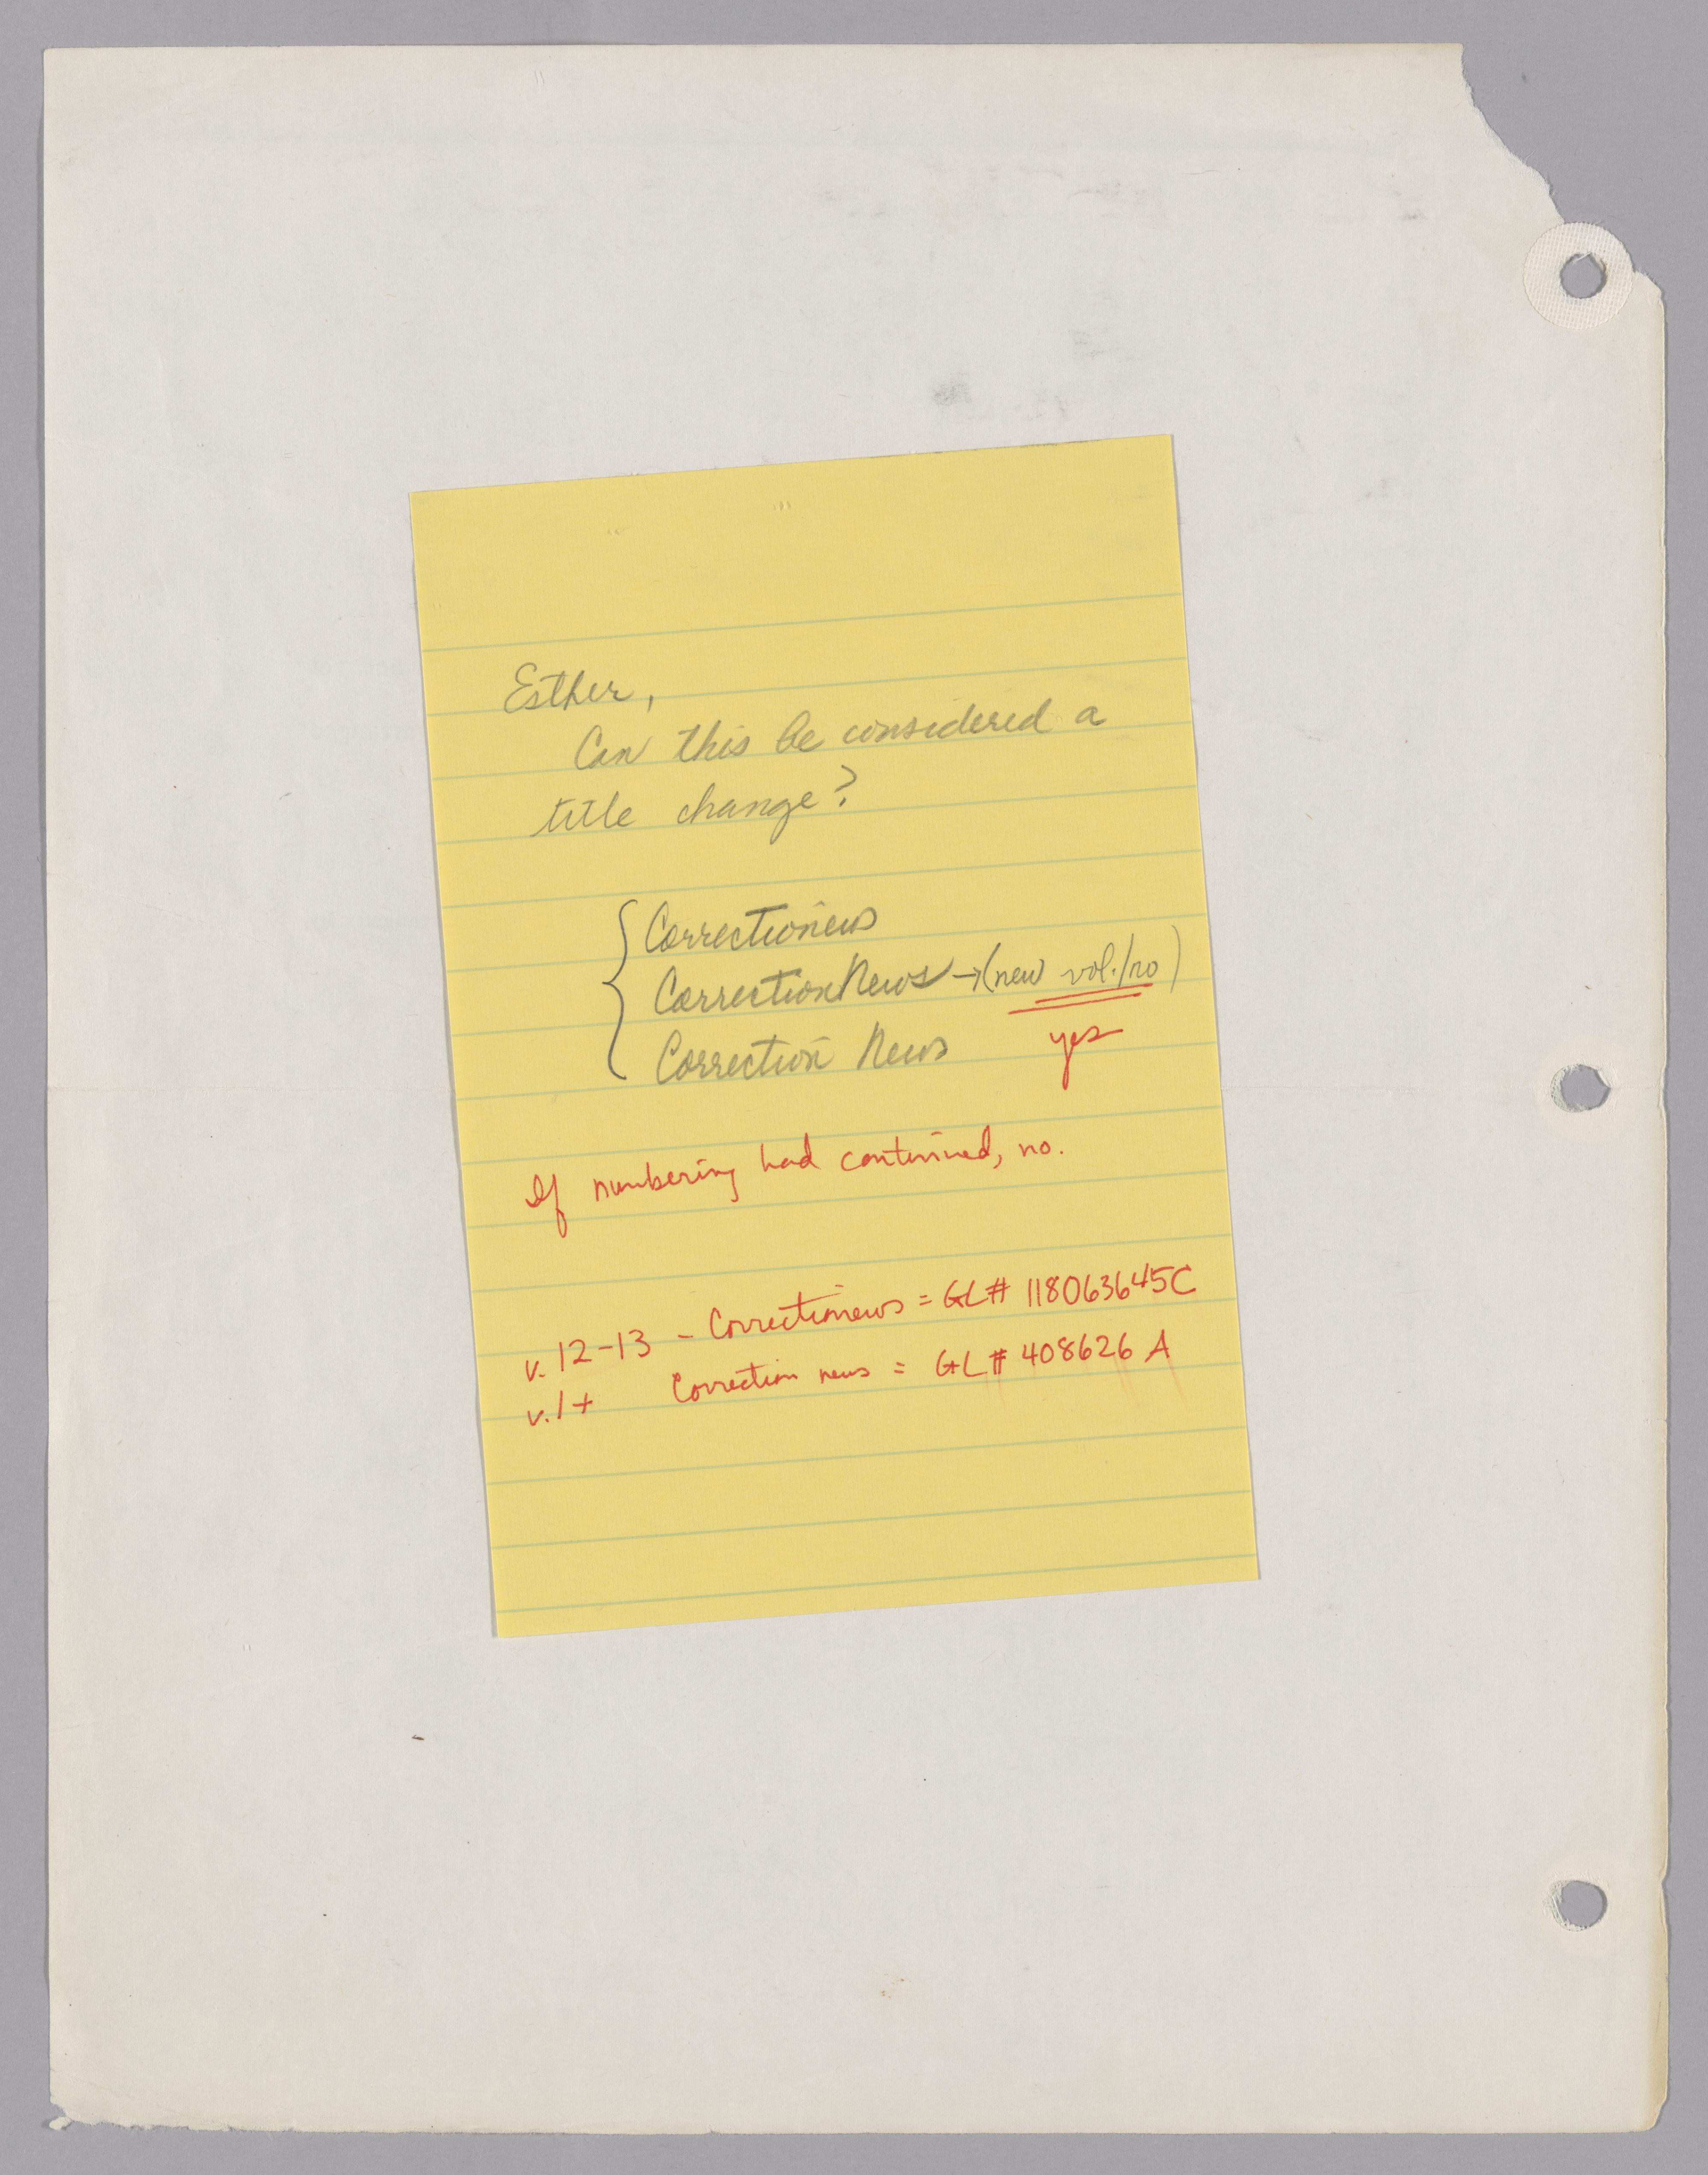 Esther,
Can this be considered a
title change?
Correctionews
CorrectionNews → (new vol./no)
Correction News
yes
If numbering had continued, no.
v. 12-13 - Correctionews = GL# 118063645C
v. 1+ Correction news = GL# 408626 A